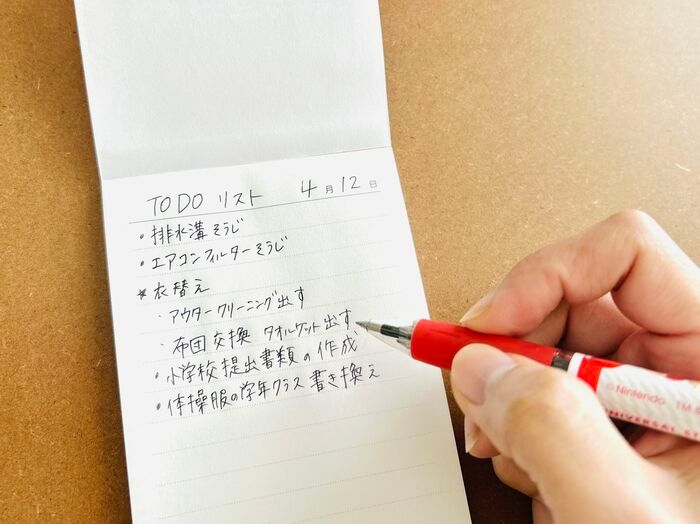 TODO リスト 4月12日
・排水溝そうじ
・エアコンフィルターそうじ
*衣替え
・アウタークリーニング出す
・布団交換 タオルケット出す
・小学校提出書類の作成
・体操服の学年クラス書き換え
©Nintendo TM
UNIVERSAL